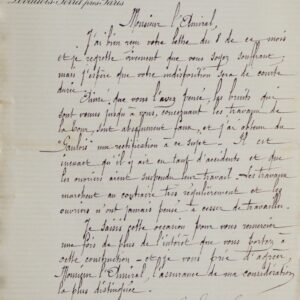 Levallois-Perret près Paris
Monsieur l'Amiral,
J'ai bien reçu votre lettre du 8 de ce mois
et je regrette vivement que vous soyez souffrant,
mais j'espère que votre indisposition sera de courte
durée.
Ainsi que vous l'avez pensé, les bruits qui
sont venus jusqu'à vous, concernant les travaux de
la tour, sont absolument faux, et j'ai obtenu du
Gaulois une rectification à ce sujet. Il est
inexact qu'il y ait eu tant d'accidents et que
les ouvriers aient suspendu leur travail. Les travaux
marchent au contraire très régulièrement et les
ouvriers n'ont jamais pensé à cesser de travailler.
Je saisis cette occasion pour vous remercier
une fois de plus de l'intérêt que vous portez à
cette construction et je vous prie d'agréer,
Monsieur l'Amiral, l'assurance de ma considération
la plus distinguée.